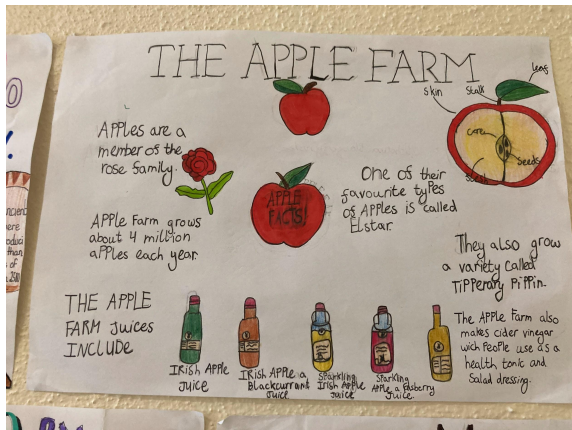 THE APPLE FARM
leaf
Stalk
Skin
core
Seeds
APPles are a
member of the
rose family.
APPLE
FACTS!
One of their
favourite types
of APPles is called
Elstar.
APPle Farm grows
about 4 million
aPPles each year
They also grow
a variety called
TiPPerary PiPPin.
THE APPLE
FARM Juices
INCLUDE
IRish APPle
Juice
IRish APPle a
Blackcurrant
Juice
SParkling
Irish APPle
Juice
SParkling
APPle a RasBerry
Juice.
The APPle Farm also
makes cider vinegar
wich PeoPle use as a
health tonic and
Salad dressing.